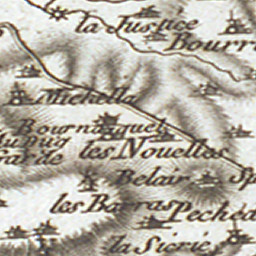 la Justice
Bourr
Michella
Bournaguel
du pug
garde
les Nouelles
Belair
Sp
les Barras
Peched
la Sicrié